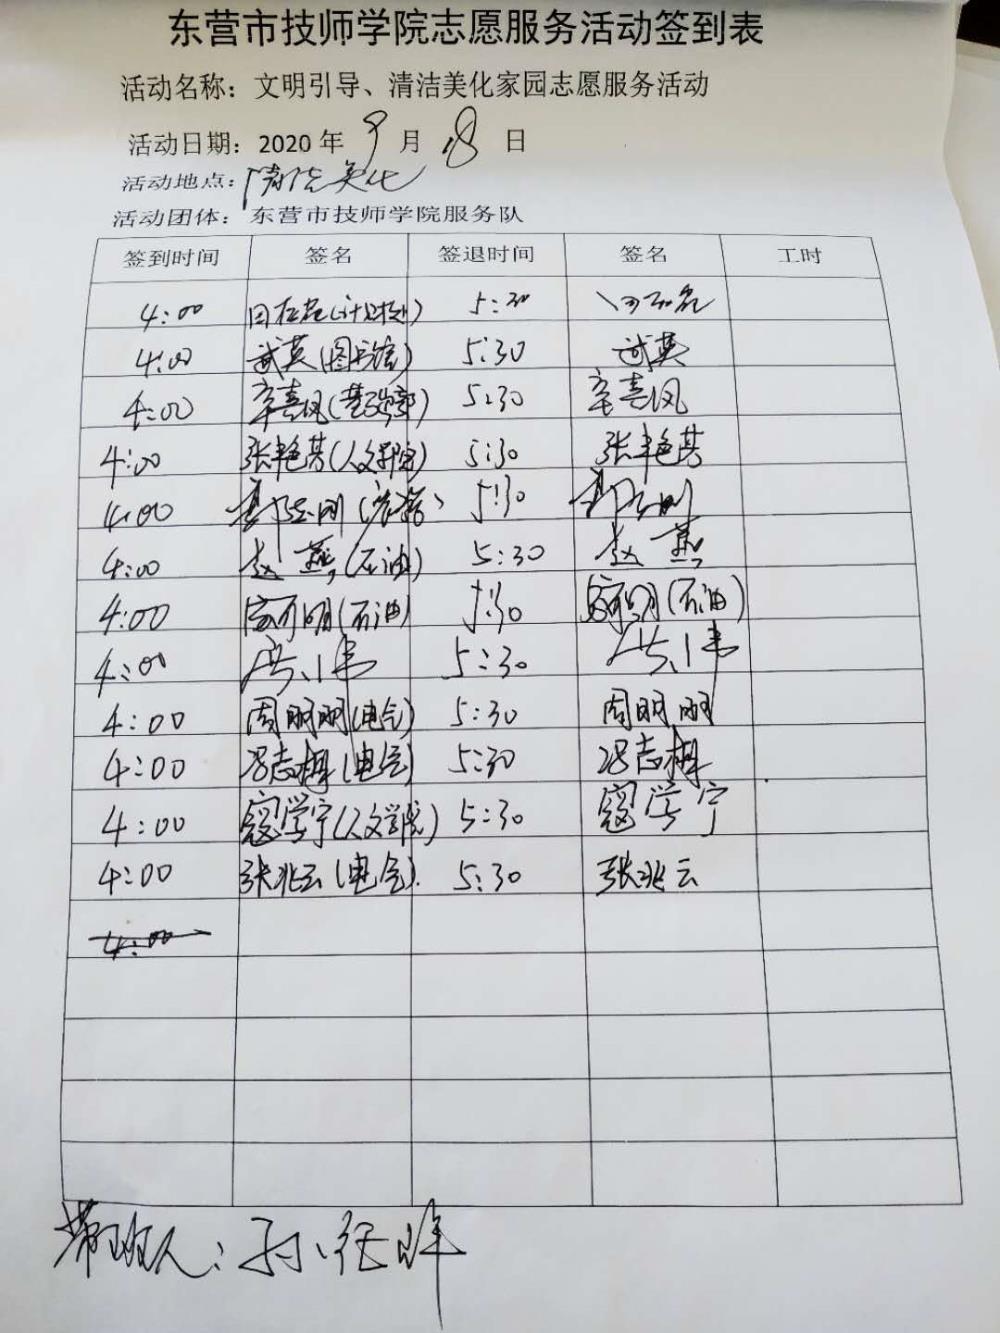 东营市技师学院志愿服务活动签到表
活动名称：文明引导、清洁美化家园志愿服务活动
活动日期：2020 年 9 月 18 日
活动地点：清洁美化
活动团体：东营市技师学院服务队
签到时间 签名 签退时间 签名 工时
4:00 5:30
4:00 武英(图书馆) 5:30 武英
4:00 辛喜凤(基础部) 5:30 辛喜凤
4:00 张艳芳(人文学院) 5:30 张艳芳
4:00 5:30
4:00 赵燕(石油) 5:30 赵燕
4:00 明(石油) 5:30 明(石油)
4:00 5:30
4:00 周明明(电气) 5:30 周明明
4:00 冯志梅(电气) 5:30 冯志梅
4:00 寇学宁(人文学院) 5:30 寇学宁
4:00 张兆云(电气) 5:30 张兆云
4:00
带班人：孙